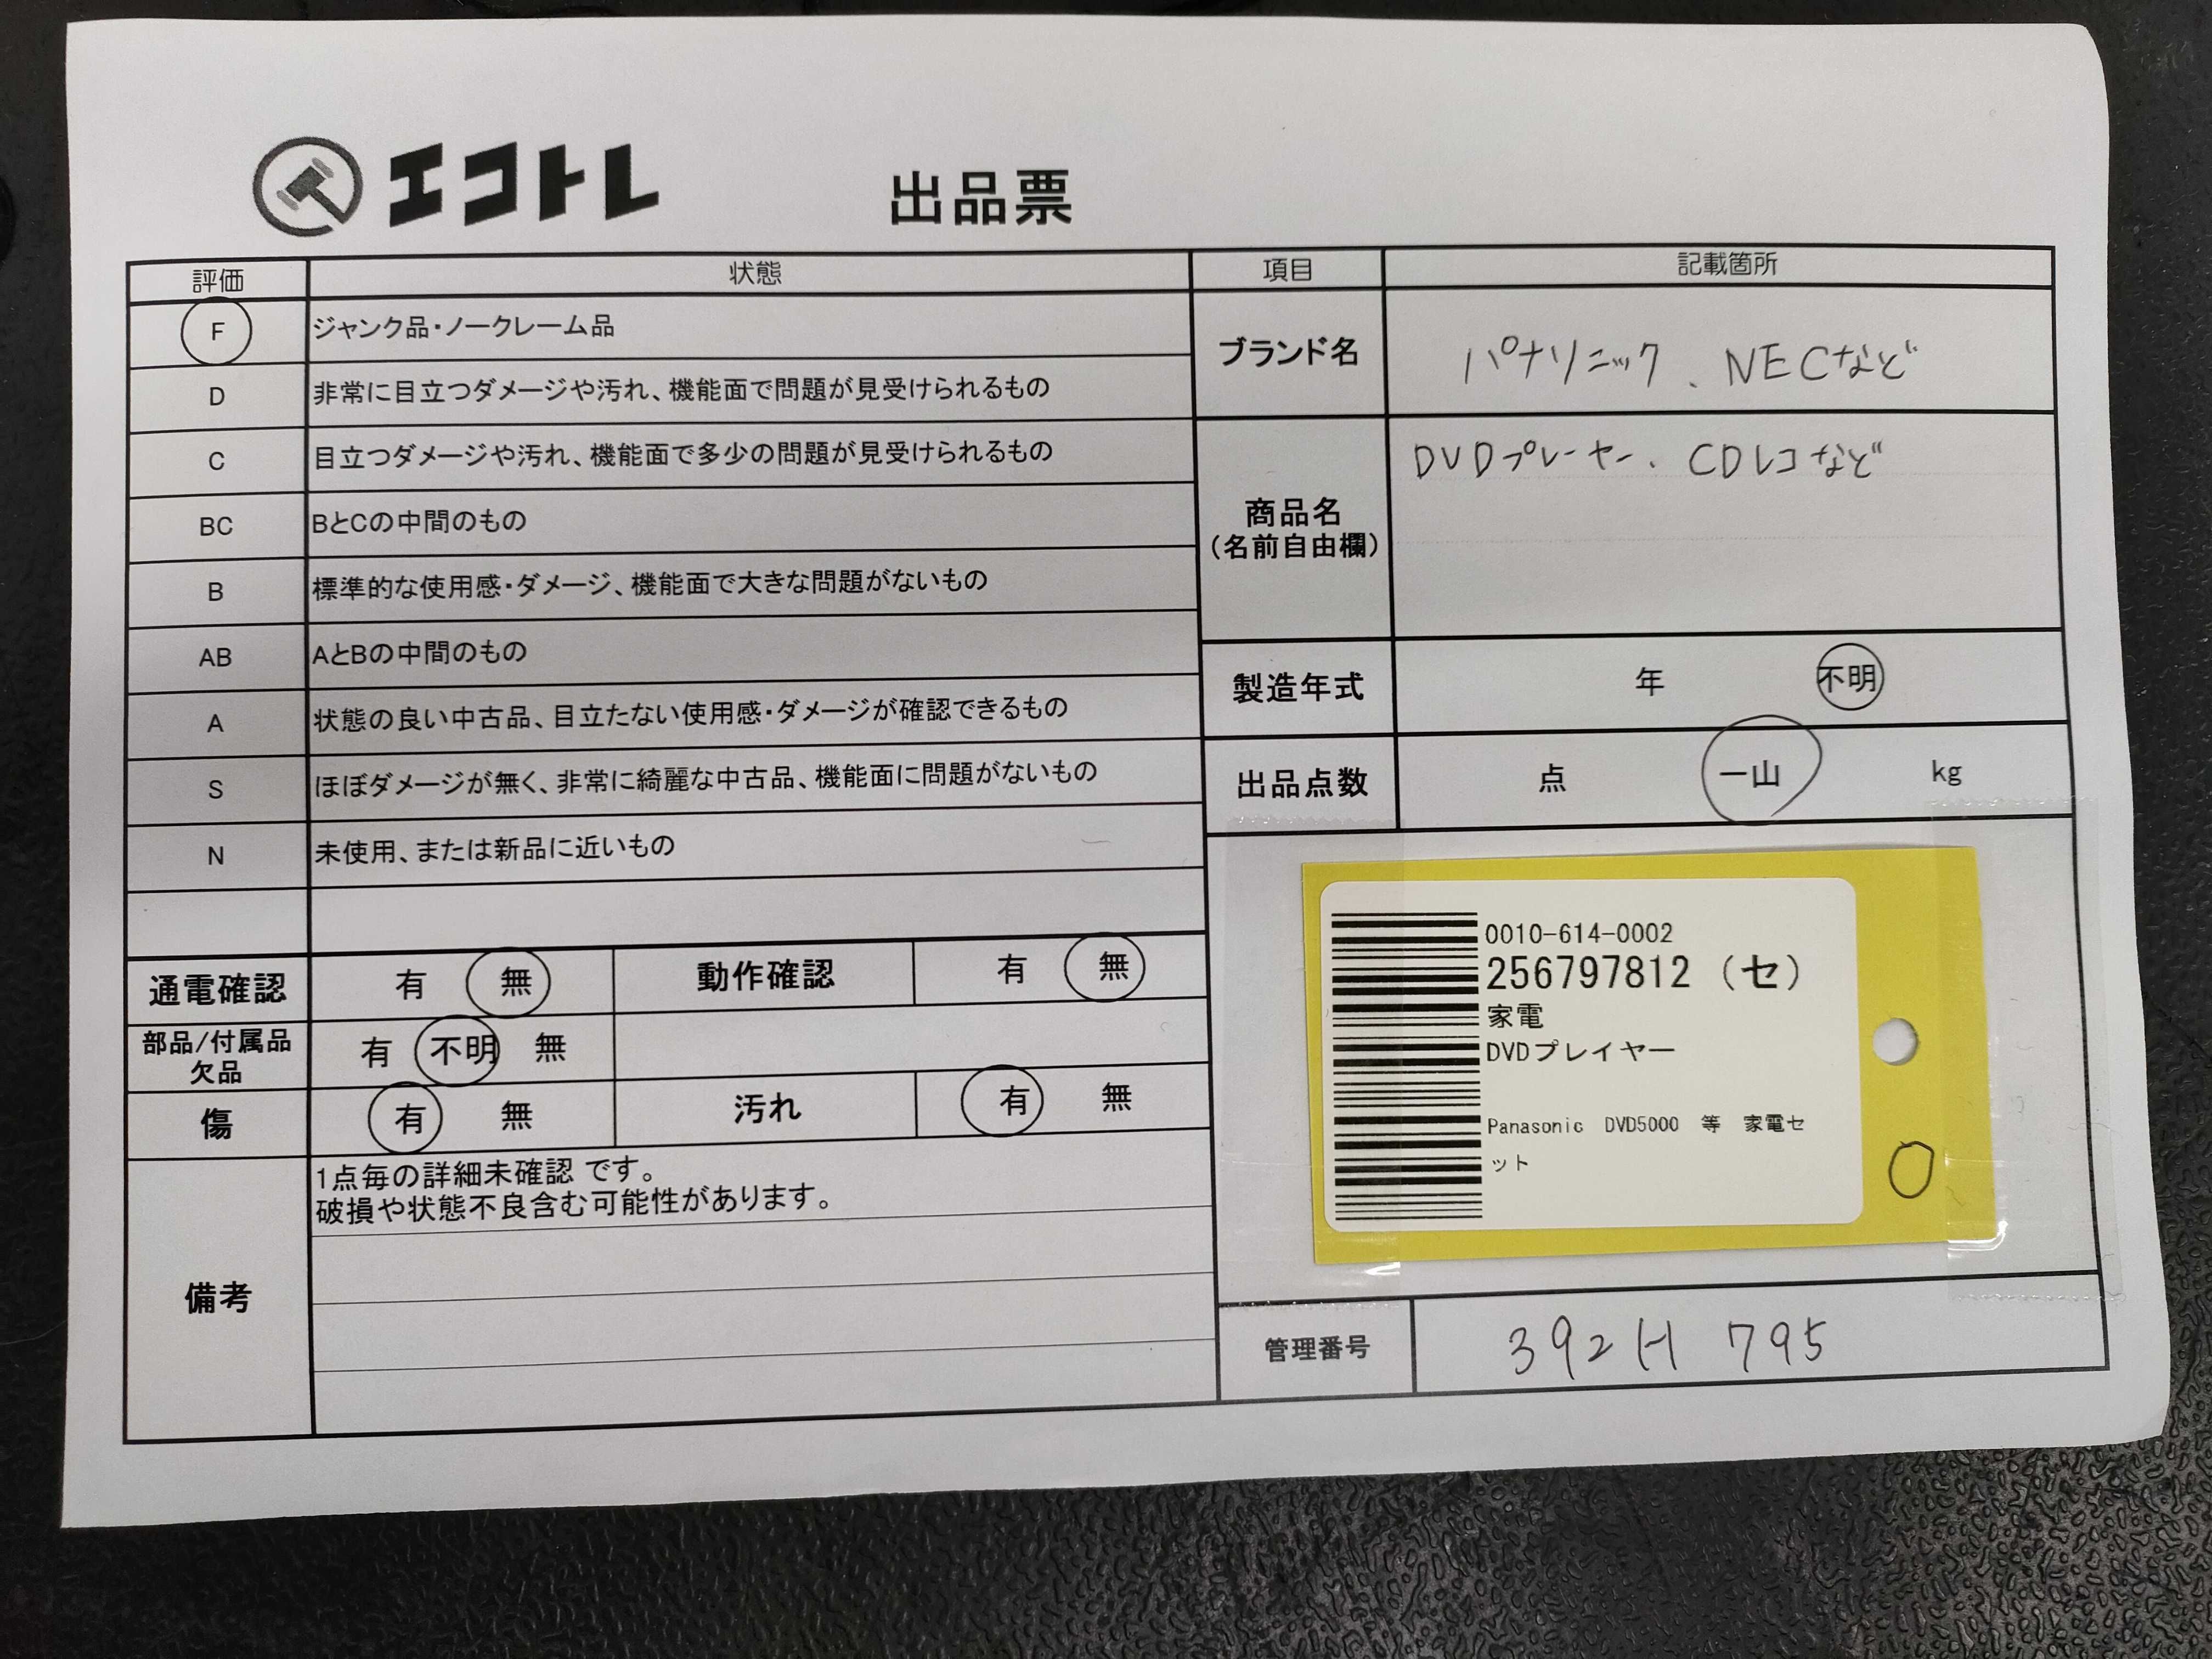 エコトレ
出品票
評価 状態
F ジャンク品・ノークレーム品
D 非常に目立つダメージや汚れ、機能面で問題が見受けられるもの
C 目立つダメージや汚れ、機能面で多少の問題が見受けられるもの
BC BとCの中間のもの
B 標準的な使用感・ダメージ、機能面で大きな問題がないもの
AB AとBの中間のもの
A 状態の良い中古品、目立たない使用感・ダメージが確認できるもの
S ほぼダメージが無く、非常に綺麗な中古品、機能面に問題がないもの
N 未使用、または新品に近いもの
通電確認 有 無 動作確認 有 無
部品/付属品
欠品
有 不明 無
傷 有 無 汚れ 有 無
備考
1点毎の詳細未確認 です。
破損や状態不良含む可能性があります。
項目 記載箇所
ブランド名 パナソニック、NECなど
商品名
(名前自由欄)
DVDプレーヤー、CDレコなど
製造年式 年 不明
出品点数 点 一山 kg
0010-614-0002
256797812（セ）
家電
DVDプレイヤー
Panasonic DVD5000 等 家電セ
ット
管理番号 392H 795